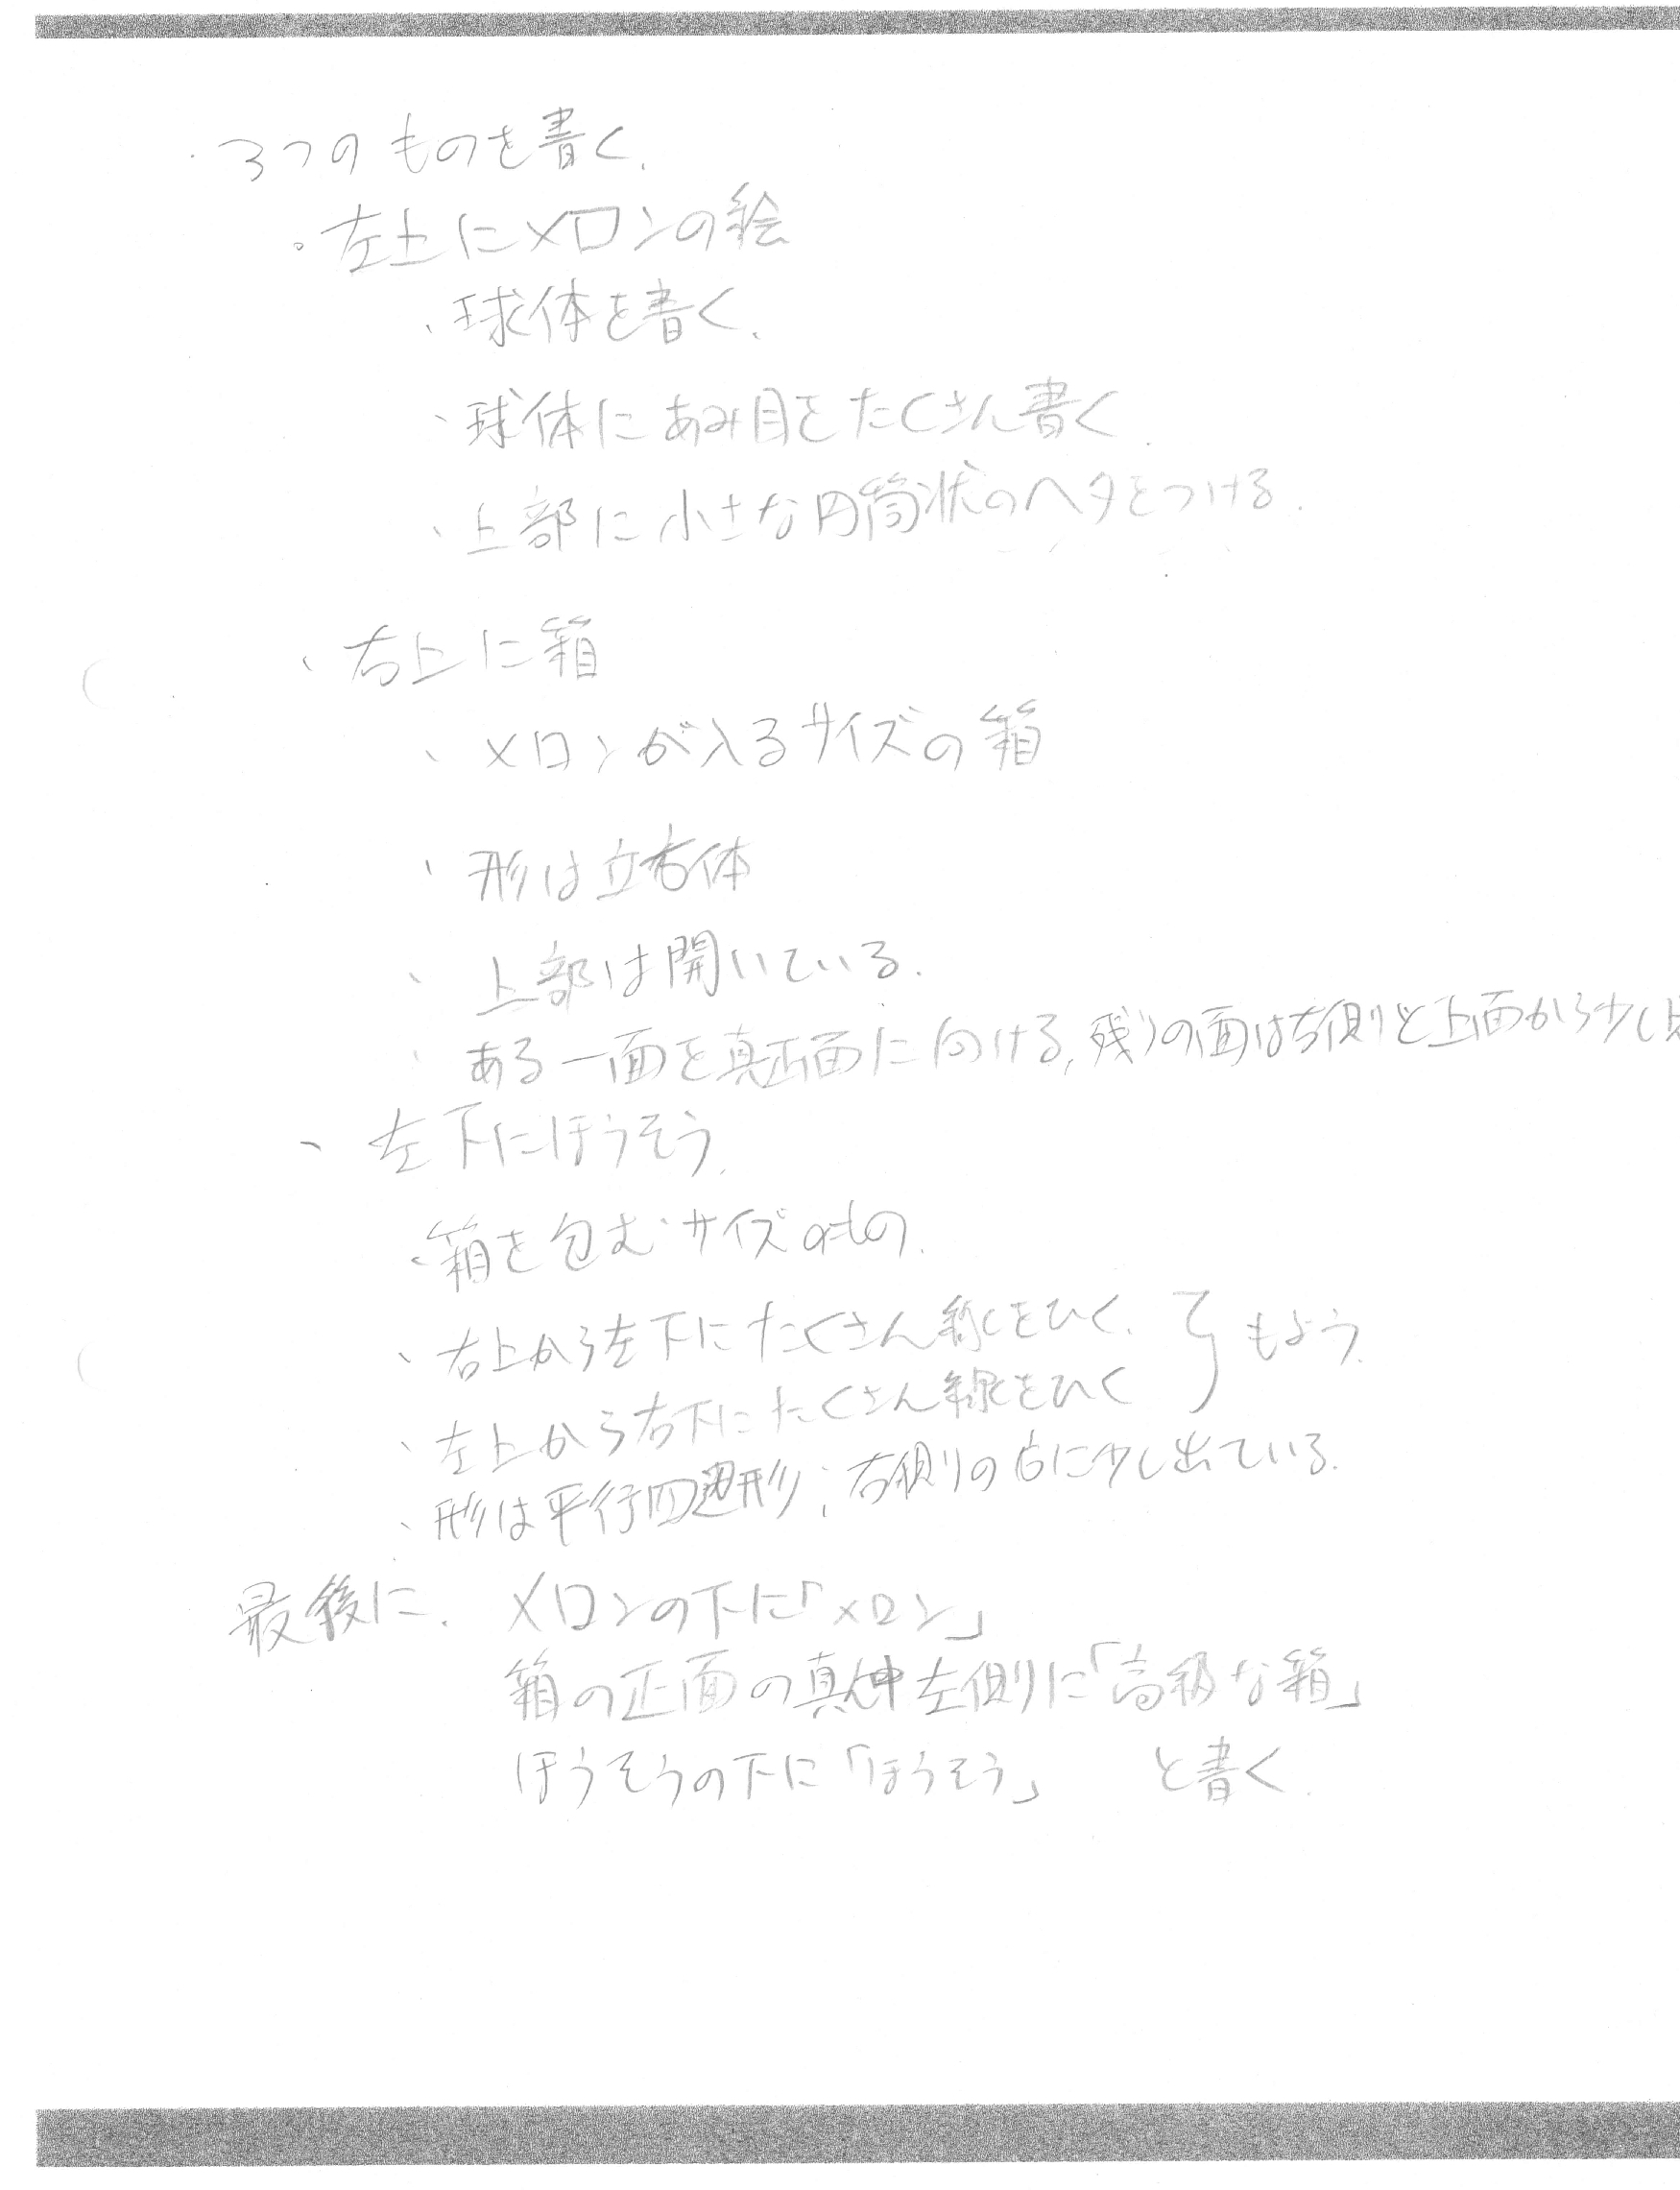 ・3つのものを書く.
・左上にメロンの絵
・球体を書く.
・球体にあみ目をたくさん書く.
・上部に小さな円筒状のヘタをつける.
・右上に箱
・メロンが入るサイズの箱
・形は立方体
・上部は開いている.
・ある一面を真正面に向ける,残りの面は右側と上面から少し
・左下にほうそう.
・箱を包むサイズのもの.
・右上から左下にたくさん線をひく. } もよう.
・左上から右下にたくさん線をひく
・形は平行四辺形;右側の に少し出ている.
最後に. メロンの下に「メロン」
箱の正面の真中左側に「高級な箱」
ほうそうの下に「ほうそう」 と書く.